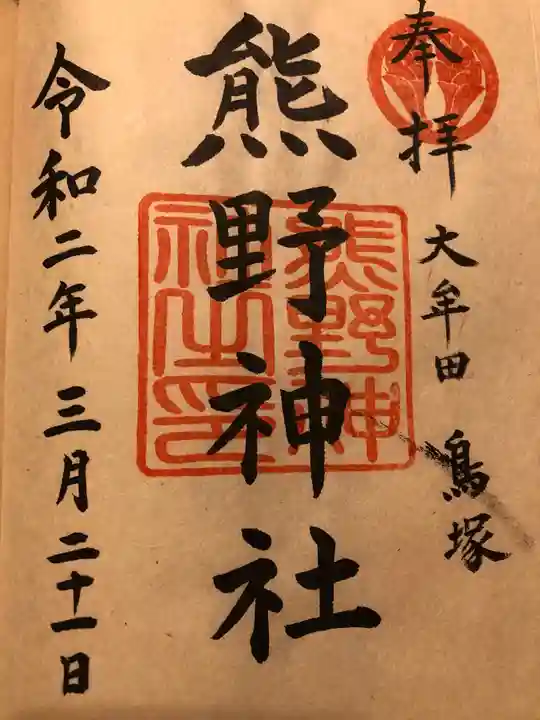 奉拝 大牟田 鳥塚
熊野神社
熊野神社之印
令和二年三月二十一日